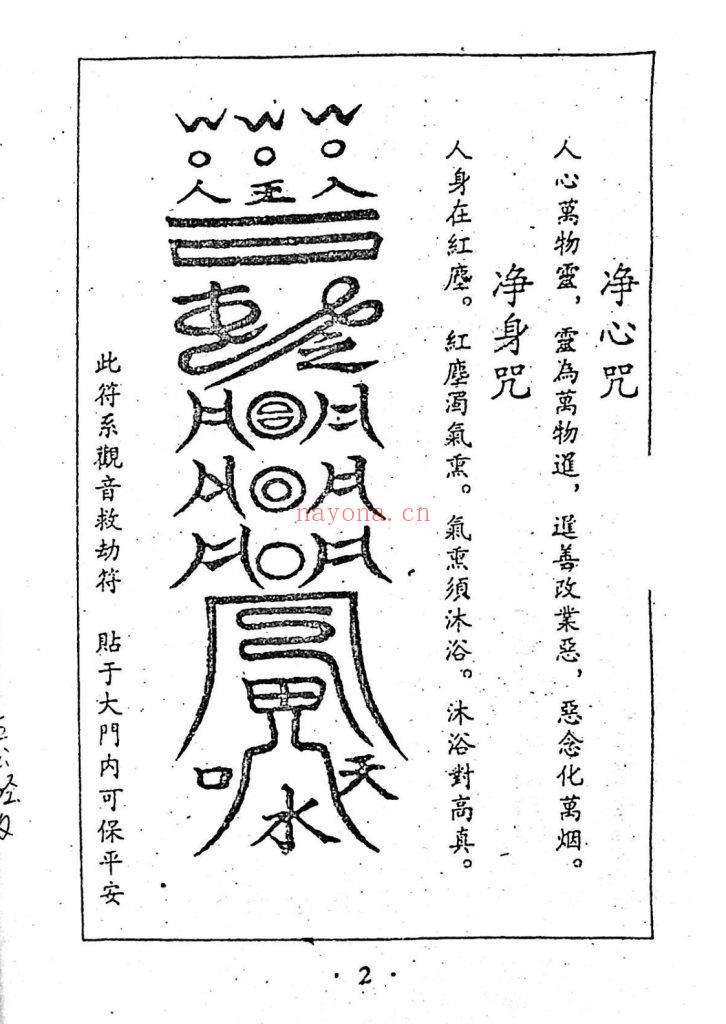 净心咒
人心萬物靈，靈為萬物暹，暹善改業惡，惡念化萬烟。
净身咒
人身在紅塵。紅塵濁氣熏。氣熏須沐浴。沐浴對高真。
口
天
水
此符系觀音救劫符 貼于大門内可保平安
nayona.cn
·2·